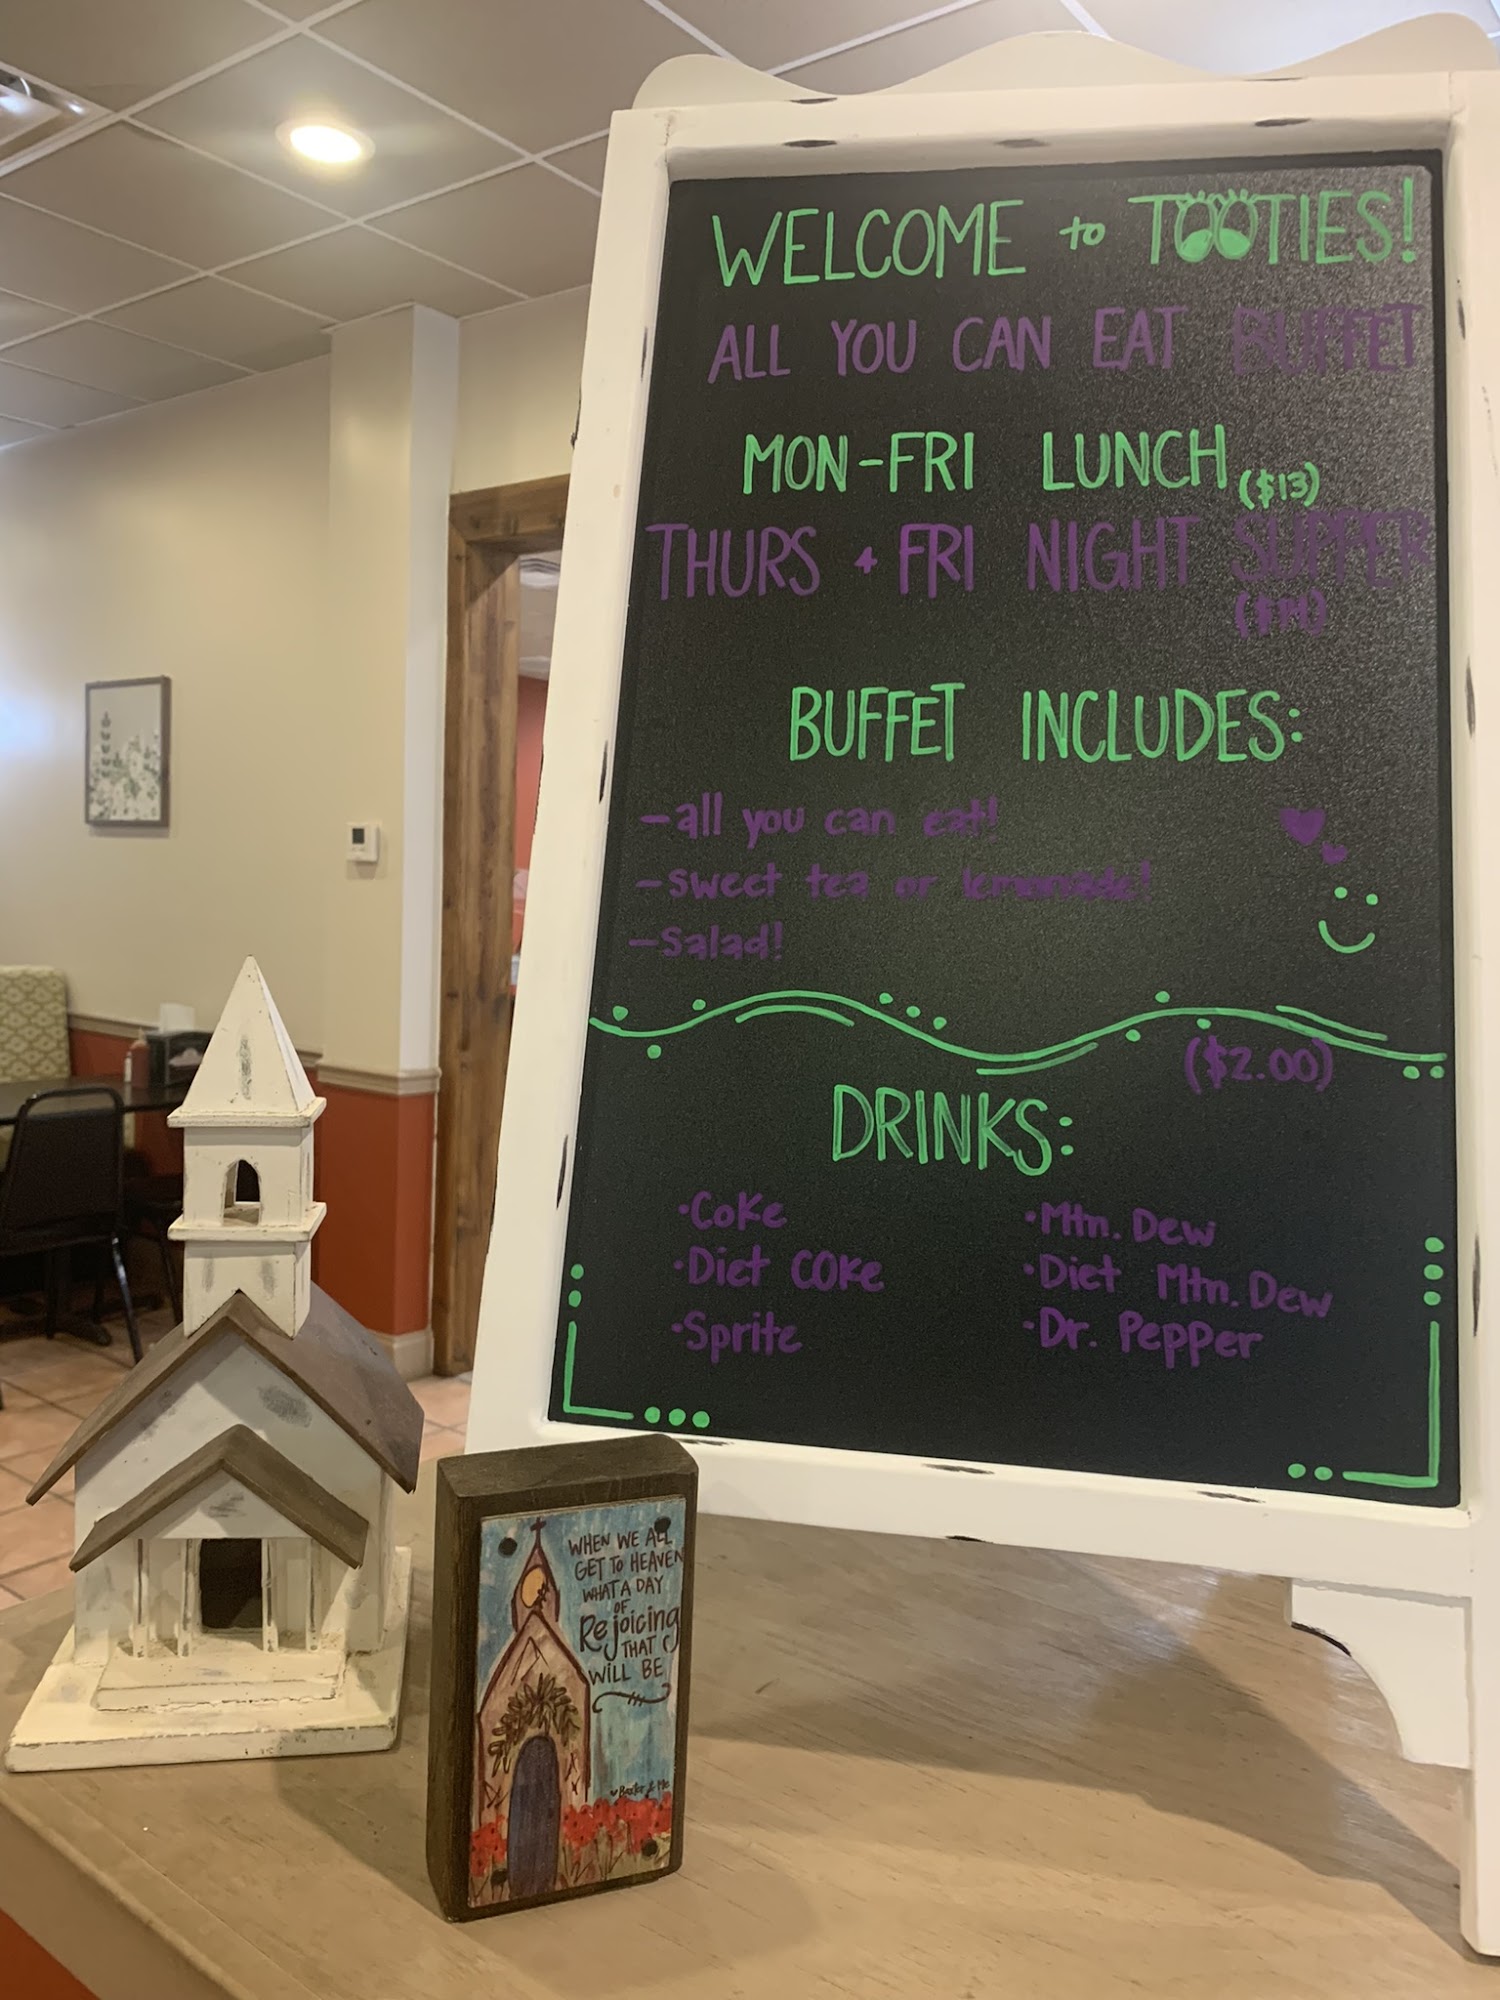 WELCOME to TOOTIES!
ALL YOU CAN EAT BUFFET
MON-FRI LUNCH ($13)
THURS + FRI NIGHT SUPPER
($14)
BUFFET INCLUDES:
-all you can eat!
-sweet tea or lemonade!
-Salad!
($2.00)
DRINKS:
·Coke
·Diet Coke
·Sprite
·Mtn. Dew
·Diet Mtn. Dew
·Dr. Pepper
WHEN WE ALL
GET TO HEAVEN
WHAT A DAY
OF
Rejoicing
THAT
WILL BE
Baxter & Me